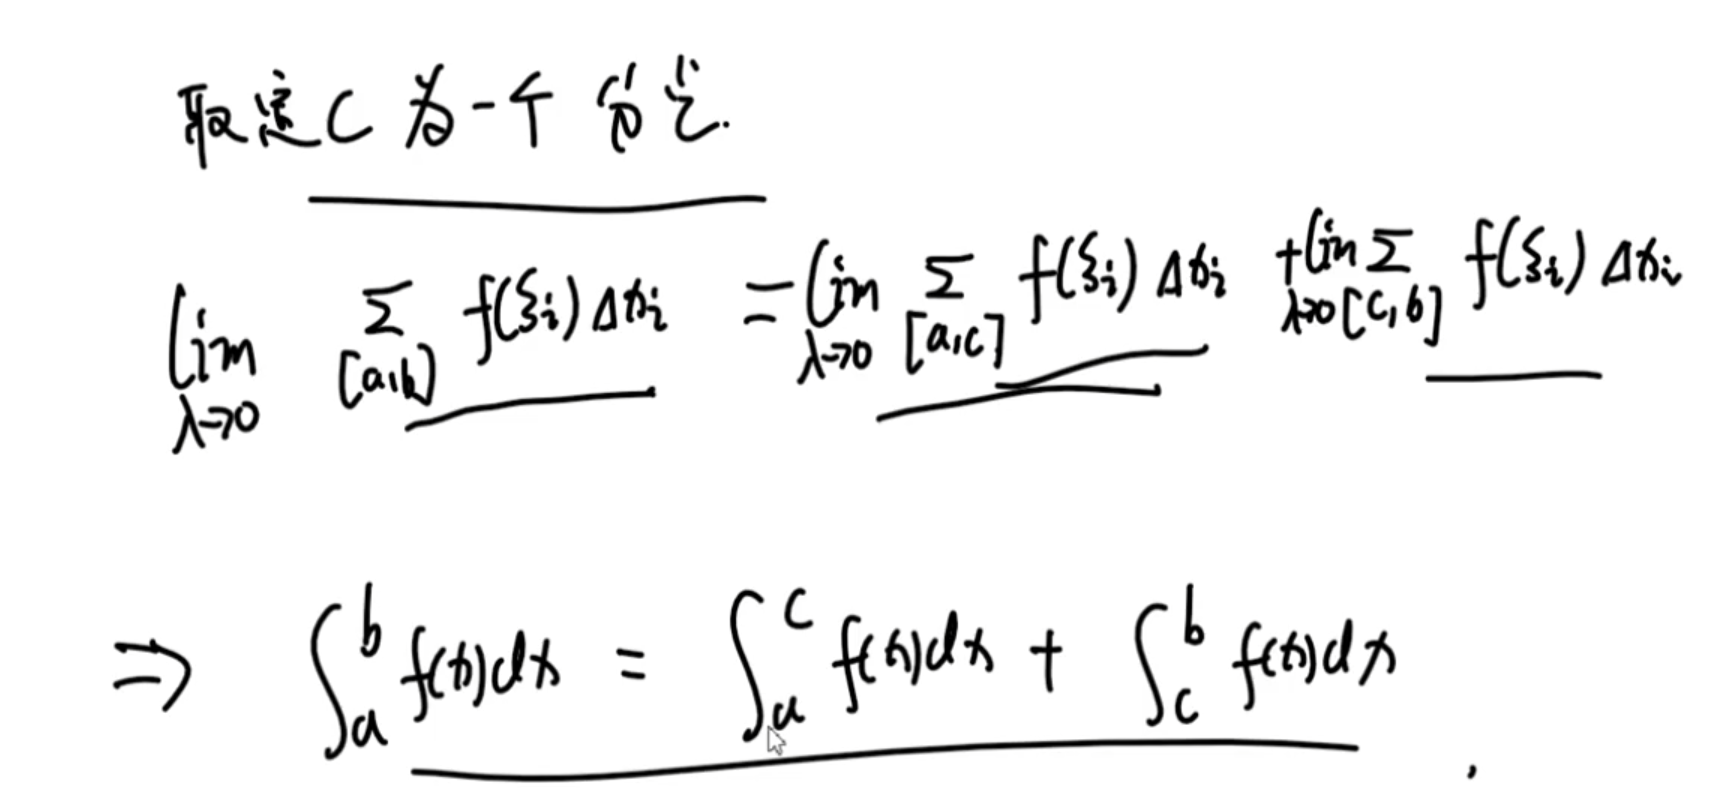 取定C为一个分点.
lim_{λ→0} Σ_{[a,b]} f(ξᵢ)Δxᵢ = lim_{λ→0} Σ_{[a,c]} f(ξᵢ)Δxᵢ + lim_{λ→0} Σ_{[c,b]} f(ξᵢ)Δxᵢ
⇒ ∫_a^b f(x)dx = ∫_a^c f(x)dx + ∫_c^b f(x)dx .